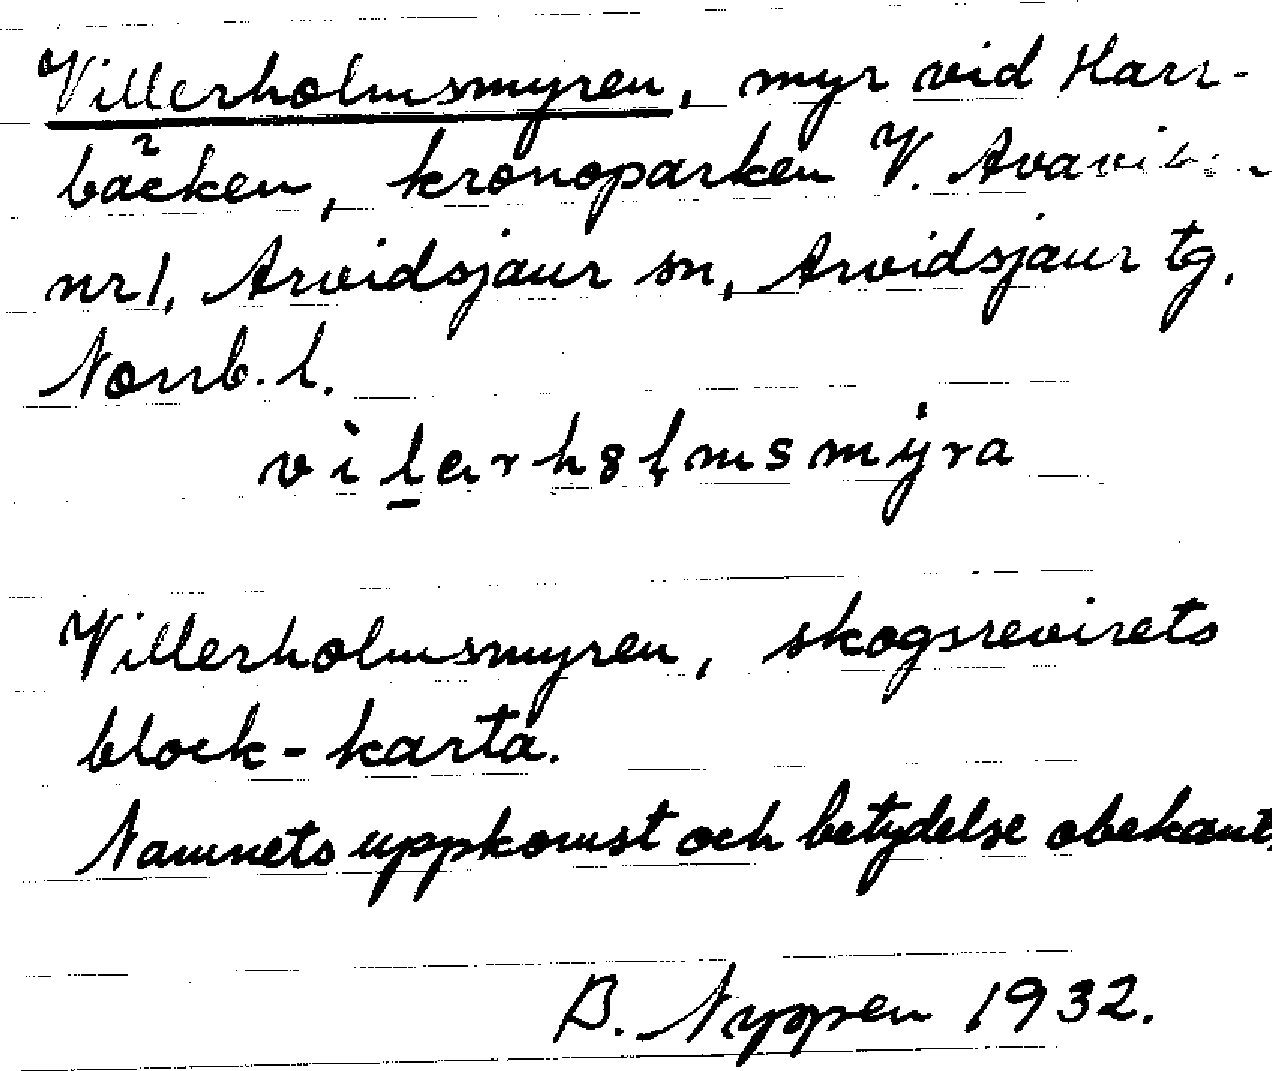 Villerholmsmyren, myr vid Harr-
bäcken, kronoparken V.
nr 1, Arvidsjaur sn, Arvidsjaur tg.
Norrb. l.
Villerholmsmyren, skogsrevirets
block-karta.
Namnets uppkomst och betydelse obekant.
B. Nyppen 1932.